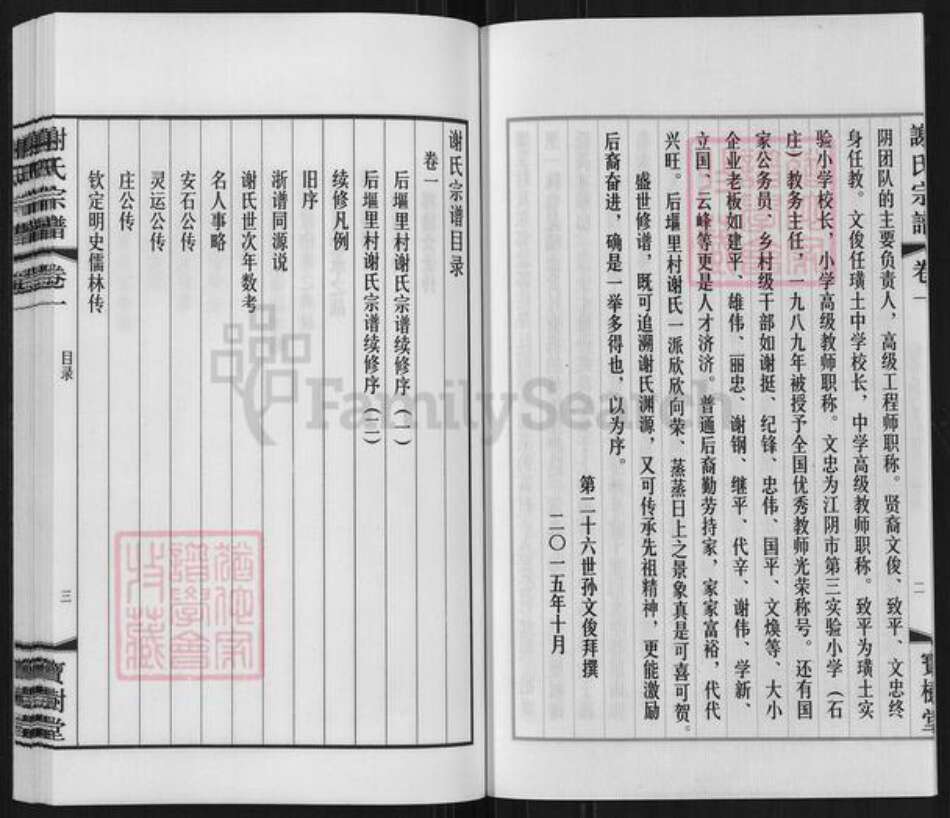 謝氏宗譜
卷一
二
寶樹堂
阴团队的主要负责人，高级工程师职称。贤裔文俊、致平、文忠终
身任教。文俊任璜土中学校长，中学高级教师职称。致平为璜土实
验小学校长，小学高级教师职称。文忠为江阴市第三实验小学（石
庄）教务主任，一九八九年被授予全国优秀教师光荣称号。还有国
家公务员、乡村级干部如谢挺、纪锋、忠伟、国平、文焕等、大小
企业老板如建平、雄伟、丽忠、谢钢、继平、代辛、谢伟、学新、
立国、云峰等更是人才济济。普通后裔勤劳持家，家家富裕，代代
兴旺。后堰里村谢氏一派欣欣向荣、蒸蒸日上之景象真是可喜可贺。
盛世修谱，既可追溯谢氏渊源，又可传承先祖精神，更能激励
后裔奋进，确是一举多得也，以为序。
第二十六世孙文俊拜撰
二〇一五年十月
谢氏宗谱目录
卷一
后堰里村谢氏宗谱续修序（一）
后堰里村谢氏宗谱续修序（二）
续修凡例
旧序
浙谱同源说
谢氏世次年数考
名人事略
安石公传
灵运公传
庄公传
钦定明史儒林传
謝氏宗譜
卷一
目录
三
寶樹堂
FamilySearch